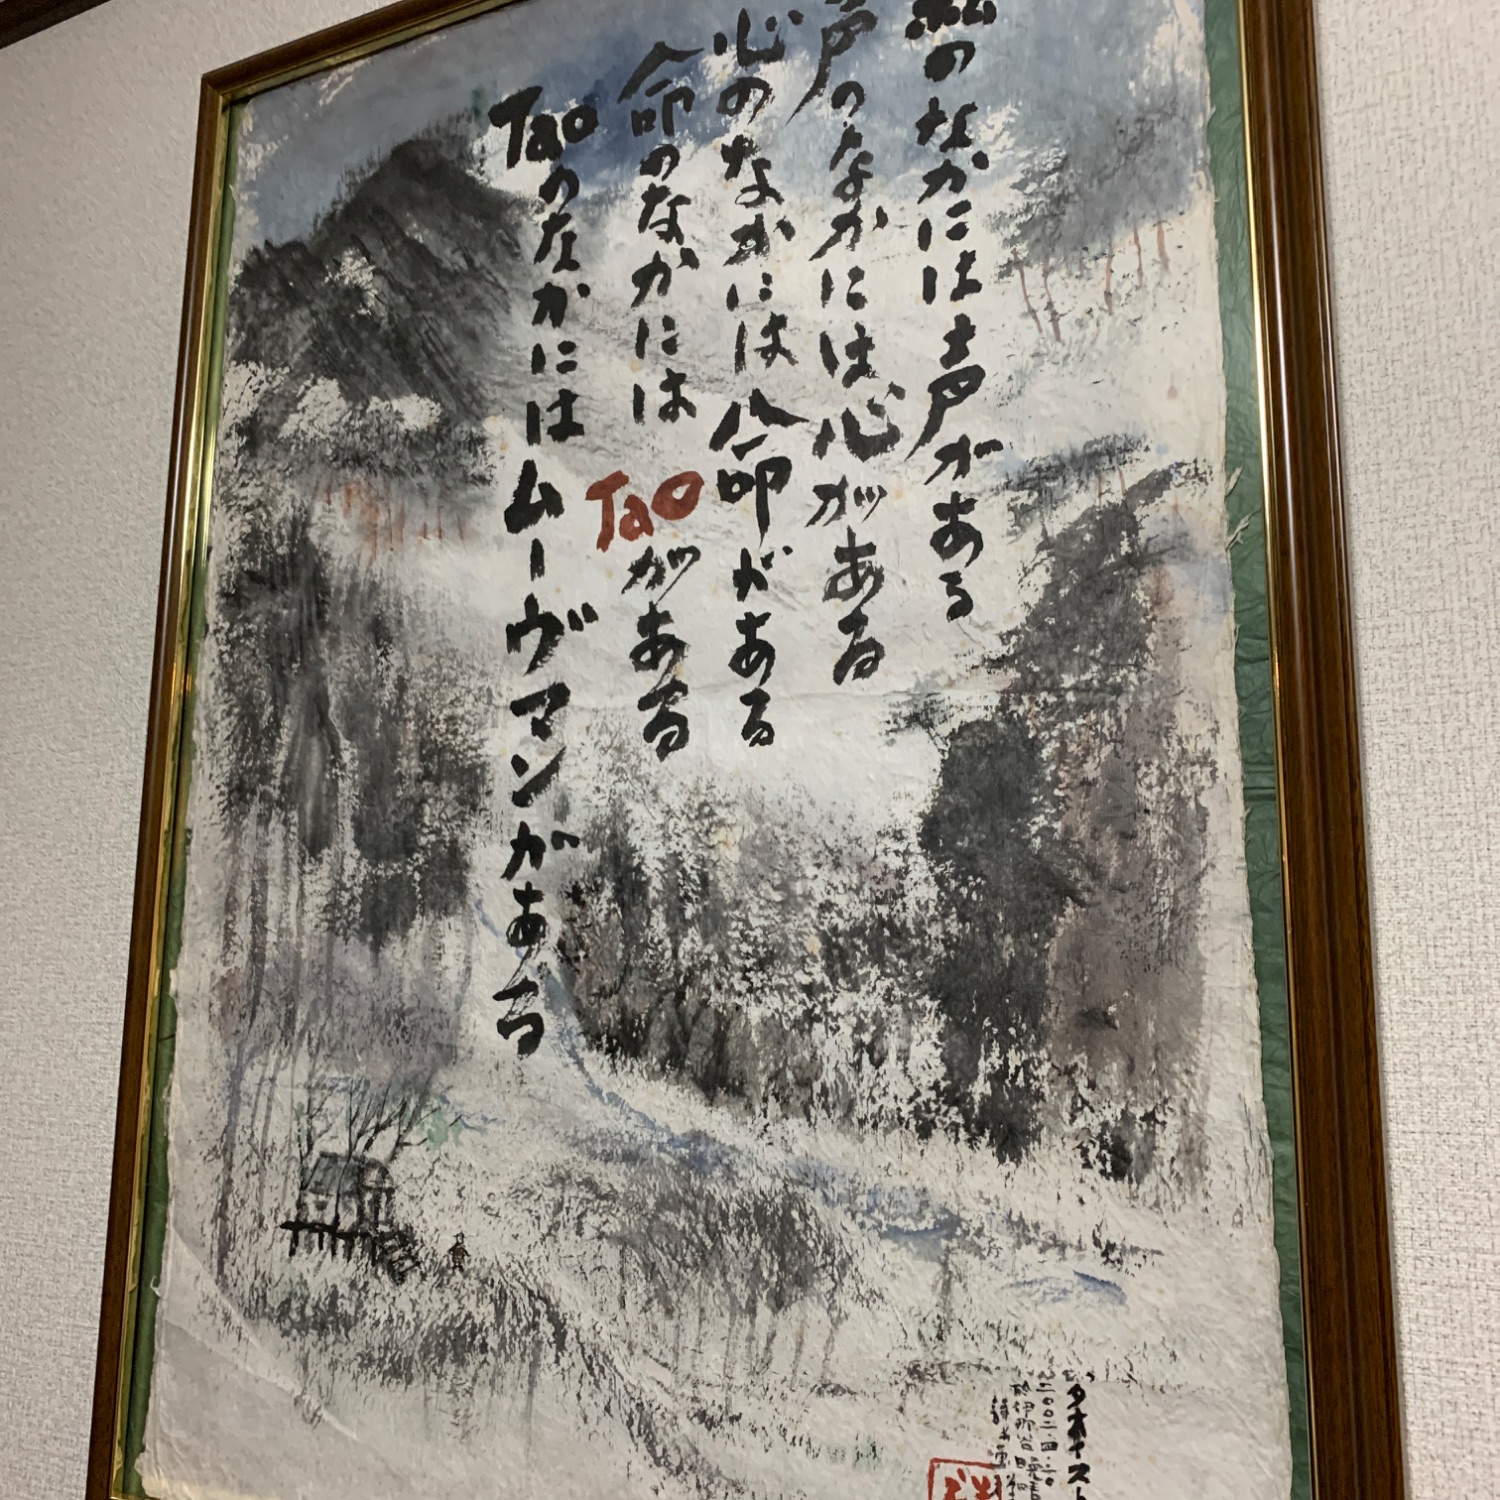 私のなかには声がある
声のなかには心がある
心のなかには命がある
命のなかにはTaoがある
Taoのなかにはムーヴマンがある